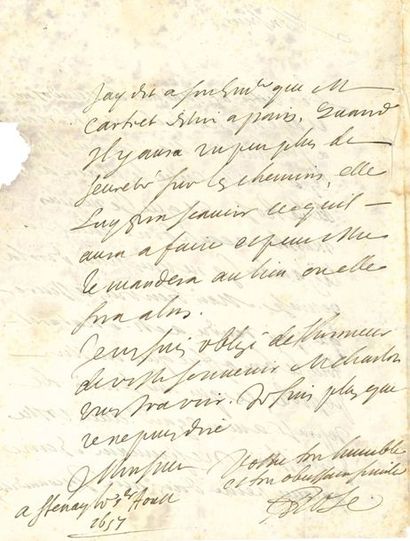 Jay dit a son Em.ce que M
cartret estoi a paris. Quand
Il y aura un peu plus de
seureté sur les chemins, elle
luy fera scavoir ce quil
aura a faire et peut estre
le mandera au lieu ou elle
sera alors.
Je vous suis obligé de l'honneur
de vostre souvenir M
vous va voir. Je suis plus que
je ne puis dire
Monsieur
Vostre tres humble
et tres obeissant servite
a Stenay le 3e Aoust
1657
Rose